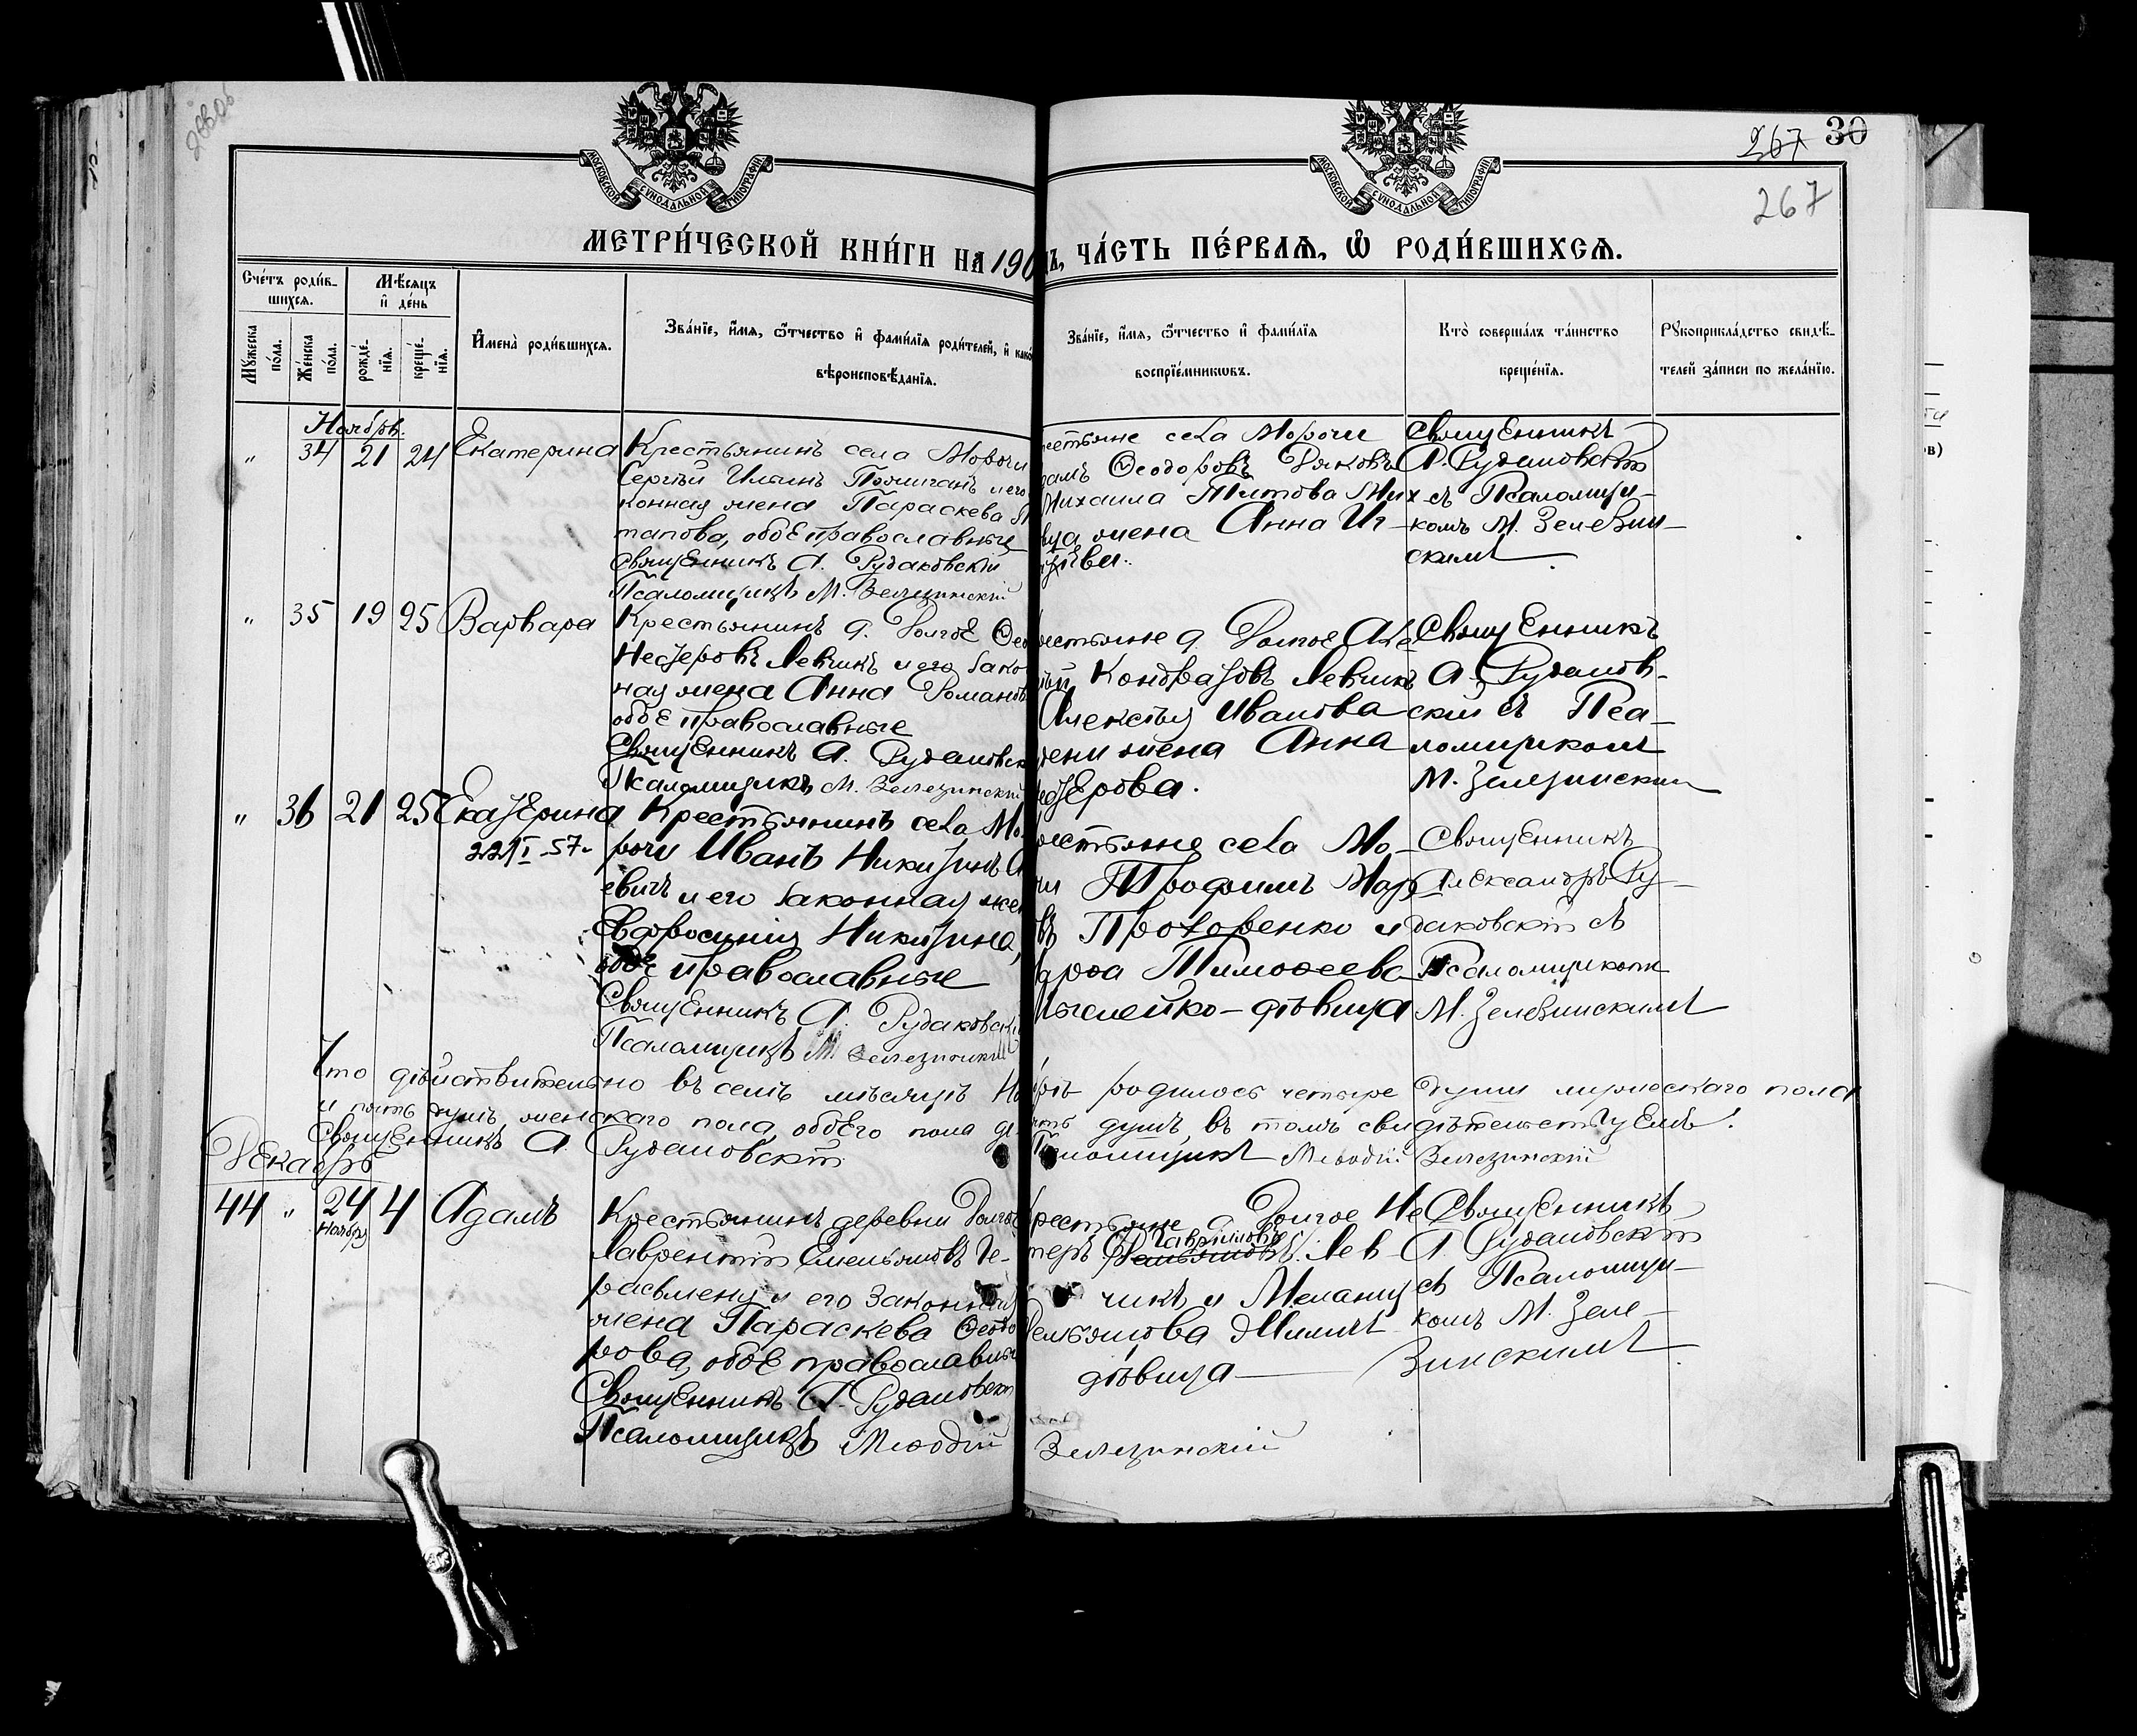 267 30
267
МОСКОВСКОЙ СѴНОДАЛЬНОЙ ТИПОГРАФІИ
МОСКОВСКОЙ СѴНОДАЛЬНОЙ ТИПОГРАФІИ
МЕТРИ́ЧЕСКОЙ КНИ́ГИ НА 190
ЧА́СТЬ ПЕ́РВАѦ, Ѡ҆ РОДИ́ВШИХСѦ.
Сче́тъ роди́в-
шихсѧ.
Мѣ́сѧцъ
и҆ де́нь
Мꙋ́жеска
по́ла.
Же́нска
по́ла.
рожде́-
нїѧ.
креще́-
нїѧ.
И҆мена̀ роди́вшихсѧ.
Зва́нїе, и҆́мѧ, ѻ҆́тчество и҆ фами́лїѧ роди́телей, и҆ како
вѣроисповѣ́данїѧ.
Зва́нїе, и҆́мѧ, ѻ҆́тчество и҆ фами́лїѧ
воспрїе́мниковъ.
Кто̀ соверша́лъ та́инство
креще́нїѧ.
Рꙋкоприкла́дство свидѣ́-
телей за́писи по жела́нїю.
Ноябрь.
" 34 21 24 Екатерина
Крестьянинъ села Морочи
Сергѣй Ильинъ и его
конная жена Параскева
тапова, обоє православные
Священникъ А. Рудаковскій
Псаломщикъ М. Зелезинскій
естьяне села Морочи
дамъ Ѳеодоровъ Дяковъ
Михаила Титова Жих
вца жена Анна Иг-
ьева.
Священникъ
А. Рудаковскій
съ Псаломщи-
комъ М. Зелезин-
скимъ
" 35 19 25 Варвара
Крестьянинъ д. Долгое Ѳео
Нестеровъ Левчикъ и его зако
ная жена Анна Романов
обоє православные
Священникъ А. Рудаковск
Псаломщикъ М. Зелезинскій
естьяне д. Долгое Але
Кондратовъ Левчикъ
Алексѣя Иванова
жена Анна
ерова.
Священникъ
А. Рудаков-
скій съ Пса-
ломщикомъ
М. Зелезинским
" 36 21 25 Екатерина
22/I-57г
Крестьянинъ села Мо-
рочи Иванъ Никитинъ А
евичъ и его законная жен
Евфросинія Никитина,
обоє православные
Священникъ А. Рудаковск
Псаломщикъ М. Зелезинскій
рестьяне села Мо-
чи Трофимъ Мар
въ Прохоренко и
Тимоѳеева
дѣвица
Священникъ
Александръ Ру-
даковскій съ
Псаломщикомъ
М. Зелезинскимъ
Что дѣйствительно въ семъ мѣсяцѣ Но брѣ родилось четыре души мужескаго пола
и пять душъ женскаго пола, обоего пола де ять душъ, въ томъ свидѣтельствуемъ.
Священникъ А. Рудаковскій Псаломщикъ Меѳодій Зелезинскій
Декабрь
44 " 24 4 Адамъ
Ноября
Крестьянинъ деревни Долгое
Лаврентій Емельяновъ Ге-
расименя и его законная
жена Параскева Ѳеодо
рова, обоє православные
Священникъ А. Рудаковскій
Псаломщикъ Меѳодій Зелезинскій
рестьяне д. Долгое Не
Гавриловъ
теръ Емельяновъ Лев-
чикъ и Меланія
Емельянова
дѣвица
Священникъ
А. Рудаковскій
съ Псаломщи-
комъ М. Зеле-
зинскимъ